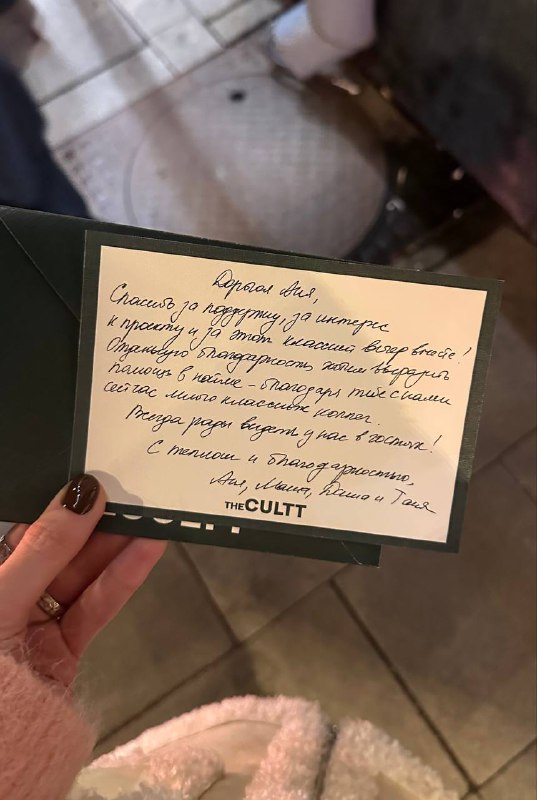 Дорогая Аня,
Спасибо за поддержку, за интерес
к проекту и за этот классный вечер вместе!
Отдельную благодарность хотим выразить
помощь в найме – благодаря тебе с нами
сейчас много классных коллег.
Всегда рады видеть у нас в гостях!
С теплом и благодарностью,
Аня, Маша, Даша и Таня
THE CULTT